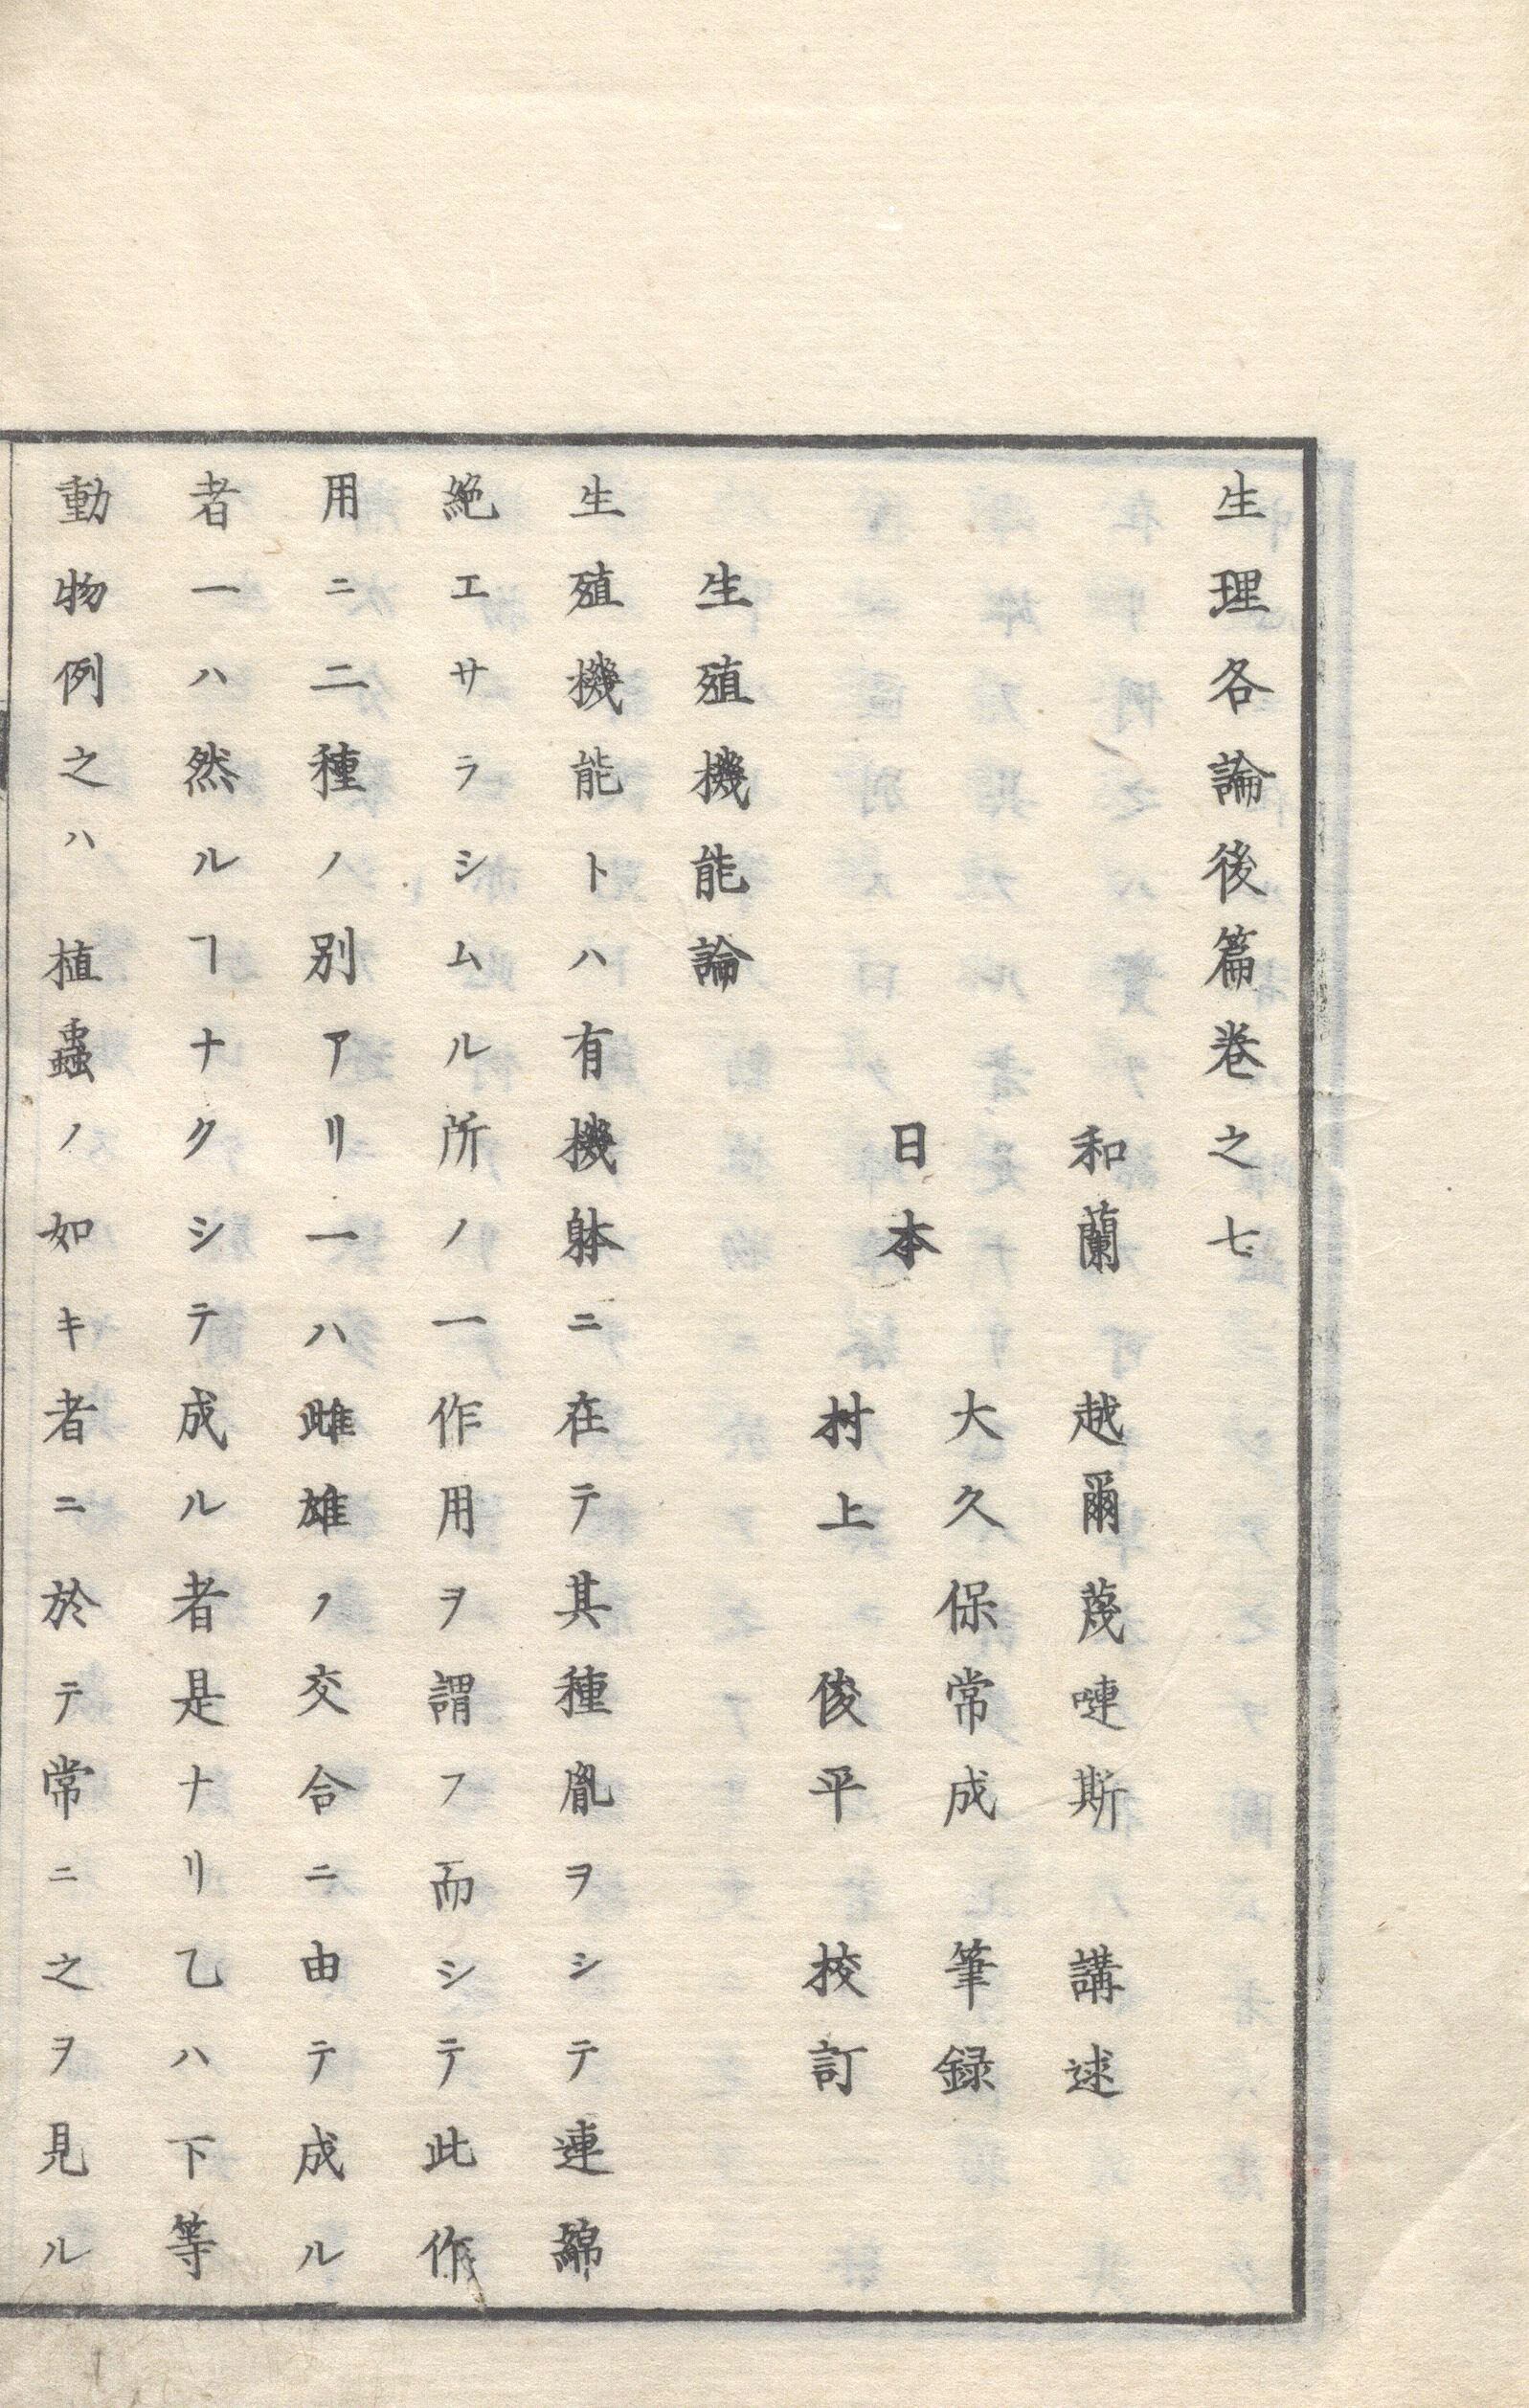 生理各論後篇巻之七
和蘭 越爾蔑嗹斯 講述
日本 大久保常成 筆録
村上 俊平 挍訂
生殖機能論
生殖機能トハ有機躰ニ在テ其種胤ヲシテ連綿
絶エサラシムル所ノ一作用ヲ謂フ而シテ此作
用ニ二種ノ別アリ一ハ雌雄ノ交合ニ由テ成ル
者一ハ然ルヿナクシテ成ル者是ナリ乙ハ下等
動物例之ハ植蟲ノ如キ者ニ於テ常ニ之ヲ見ル